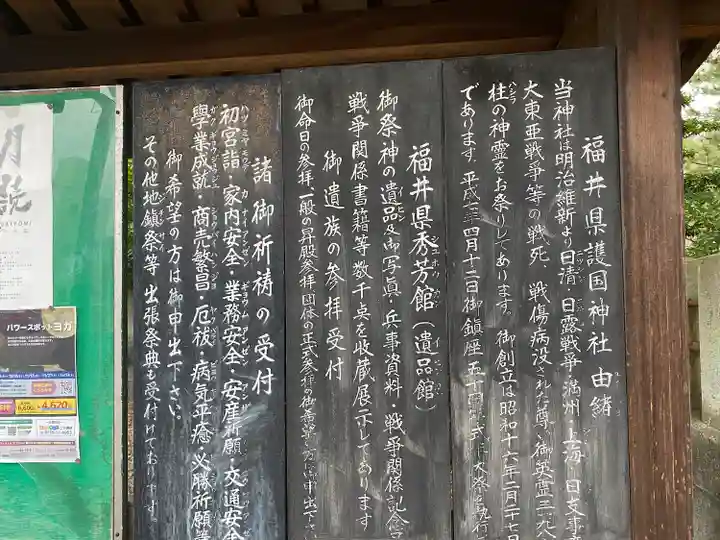 福井県護国神社由緒
当神社は明治維新より日清、日露戦争、満州、上海、日支事
大東亜戦争等の戦死、戦傷病没された尊い御英霊三
柱の神霊をお祭りしてあります。御創立は昭和十六年二月二十七日
であります。平成三年四月十二日御鎮座五十
福井県秀芳館(遺品館)
御祭神の遺品及御写真・兵事資料・戦争関係記念
戦争関係書籍等数千点を收蔵展示してあります
御遺族の参拝受付
御命日の参拝、一般の昇殿参拝団体の正式参拝御希望の方は御申出下さ
諸御祈祷の受付
初宮詣・家内安全・業務安全・安産祈願・交通安全
學業成就・商売繁昌・厄祓・病気平癒・必勝祈願等
御希望の方は御申出下さい。
その他地鎮祭等出張祭典も受付けております。
パワースポットヨガ